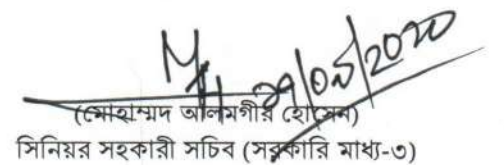 (মোহাম্মদ আলমগীর হোসেন)
সিনিয়র সহকারী সচিব (সরকারি মাধ্য-৩)